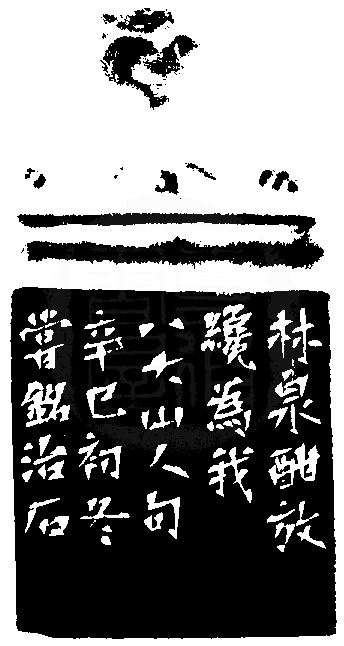 林泉酣放
纔為我
八大山人句
辛巳初冬
嘗銘治石